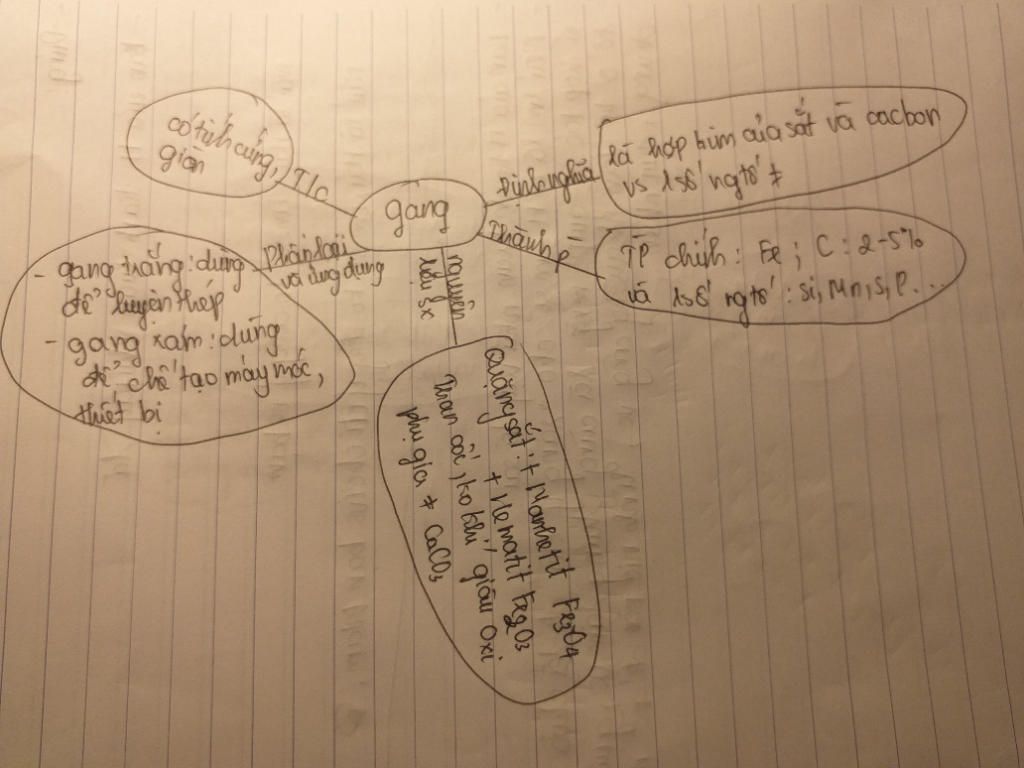 gang
Định nghĩa
là hợp kim của sắt và cacbon
vs 1 số ngtố ≠
Thành p
TP chính : Fe ; C : 2-5%
và 1 số ngtố : Si, Mn, S, P....
nguyên
liệu sx
Quặng sắt : + Manhetit Fe3O4
+ Hematit Fe2O3
Than cốc, ko khí giàu oxi
phụ gia ≠ CaCO3
Phân loại
và ứng dụng
- gang trắng : dùng
để luyện thép
- gang xám : dùng
để chế tạo máy móc,
thiết bị
T/c
có tính cứng,
giòn